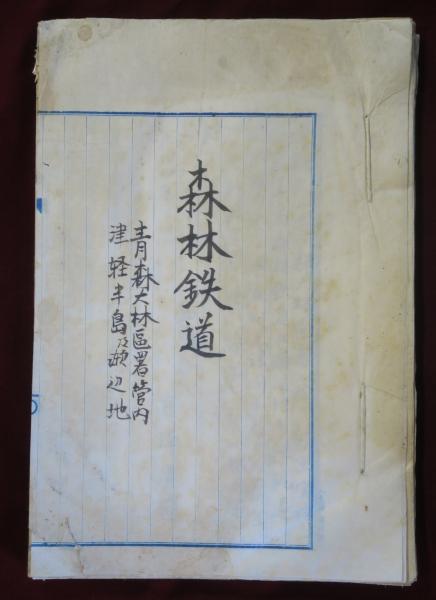 森林鉄道
青森大林區署管内
津軽半島及瀕辺地